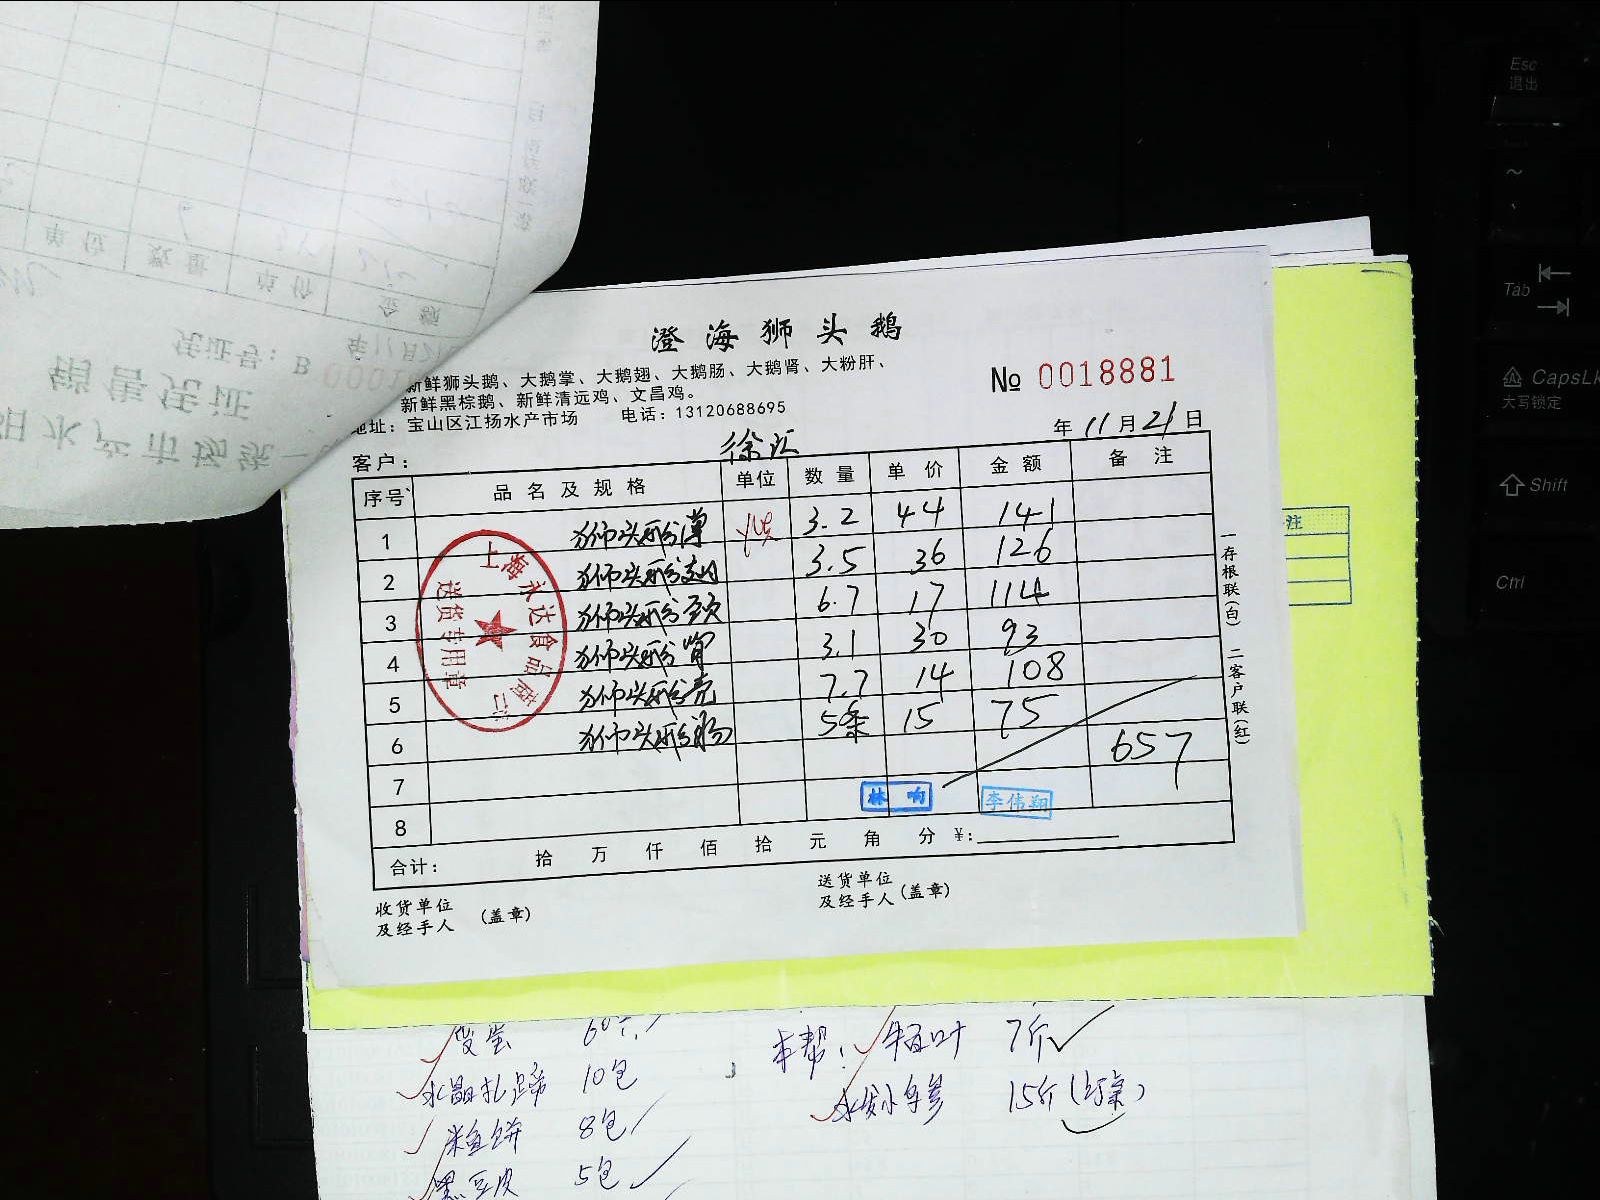 澄海狮头鹅
新鲜狮头鹅、大鹅掌、大鹅翅、大鹅肠、大鹅肾、大粉肝、
新鲜黑棕鹅、新鲜清远鸡、文昌鸡。
地址：宝山区江扬水产市场 电话：13120688695
№ 0018881
年 11 月 21 日
客户： 徐汇
序号 品名及规格 单位 数量 单价 金额 备注
1 狮头 3.2 44 141
2 狮头 3.5 36 126
3 狮头 6.7 17 114
4 狮头 肾 3.1 30 93
5 狮头 壳 7.7 14 108
6 狮头 肠 5条 15 75
657
7
8
林响 李伟翔
合计： 拾 万 仟 佰 拾 元 角 分 ¥：
收货单位
及经手人 （盖章）
送货单位
及经手人（盖章）
一存根联（白） 二客户联（红）
上海永达食品商行
送货专用章
注
销售凭证
凭证号：B
单位 数量 单价 金额
本帮： 牛百叶 7斤
水发小乌参 15斤
皮蛋 60个
水晶扎蹄 10包
米鱼饼 8包
黑豆皮 5包
Esc
退出
Tab
CapsLk
大写锁定
Shift
Ctrl